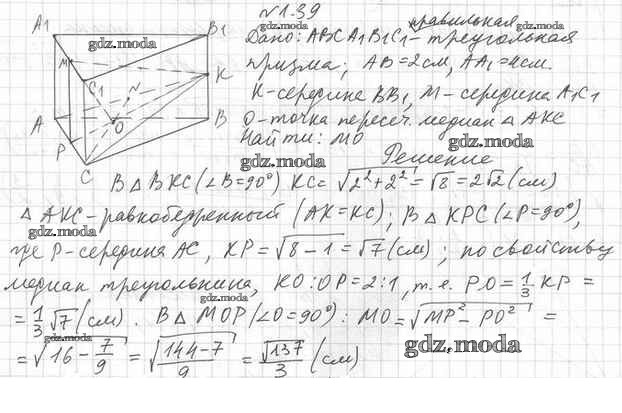 №1.39
правильная
Дано: ABCA1B1C1-треугольная
призма; AB=2см, AA1=4см.
K-середине BB1, M-середина A1C1
O-точка пересеч. медиан △ AKC
Найти: MO
Решение
В △ BKC (∠B=90°) KC= √2²+2² = √8 = 2√2 (см)
△ AKC-равнобедренный (AK=KC); В △ KPC (∠P=90°),
где P-середина AC, KP=√8-1=√7 (см); по свойству
медиан треугольника, KO:OP=2:1, т.е. PO=1/3 KP =
= 1/3 √7 (см). В △ MOP (∠O=90°): MO=√MP²-PO² =
= √16-7/9 = √144-7/9 = √137/3 (см)
A1
B1
M
C1
K
N
A
O
B
P
C
gdz.moda
gdz.moda
gdz.moda
gdz.moda
gdz.moda
gdz.moda
gdz.moda
gdz.moda
gdz.moda